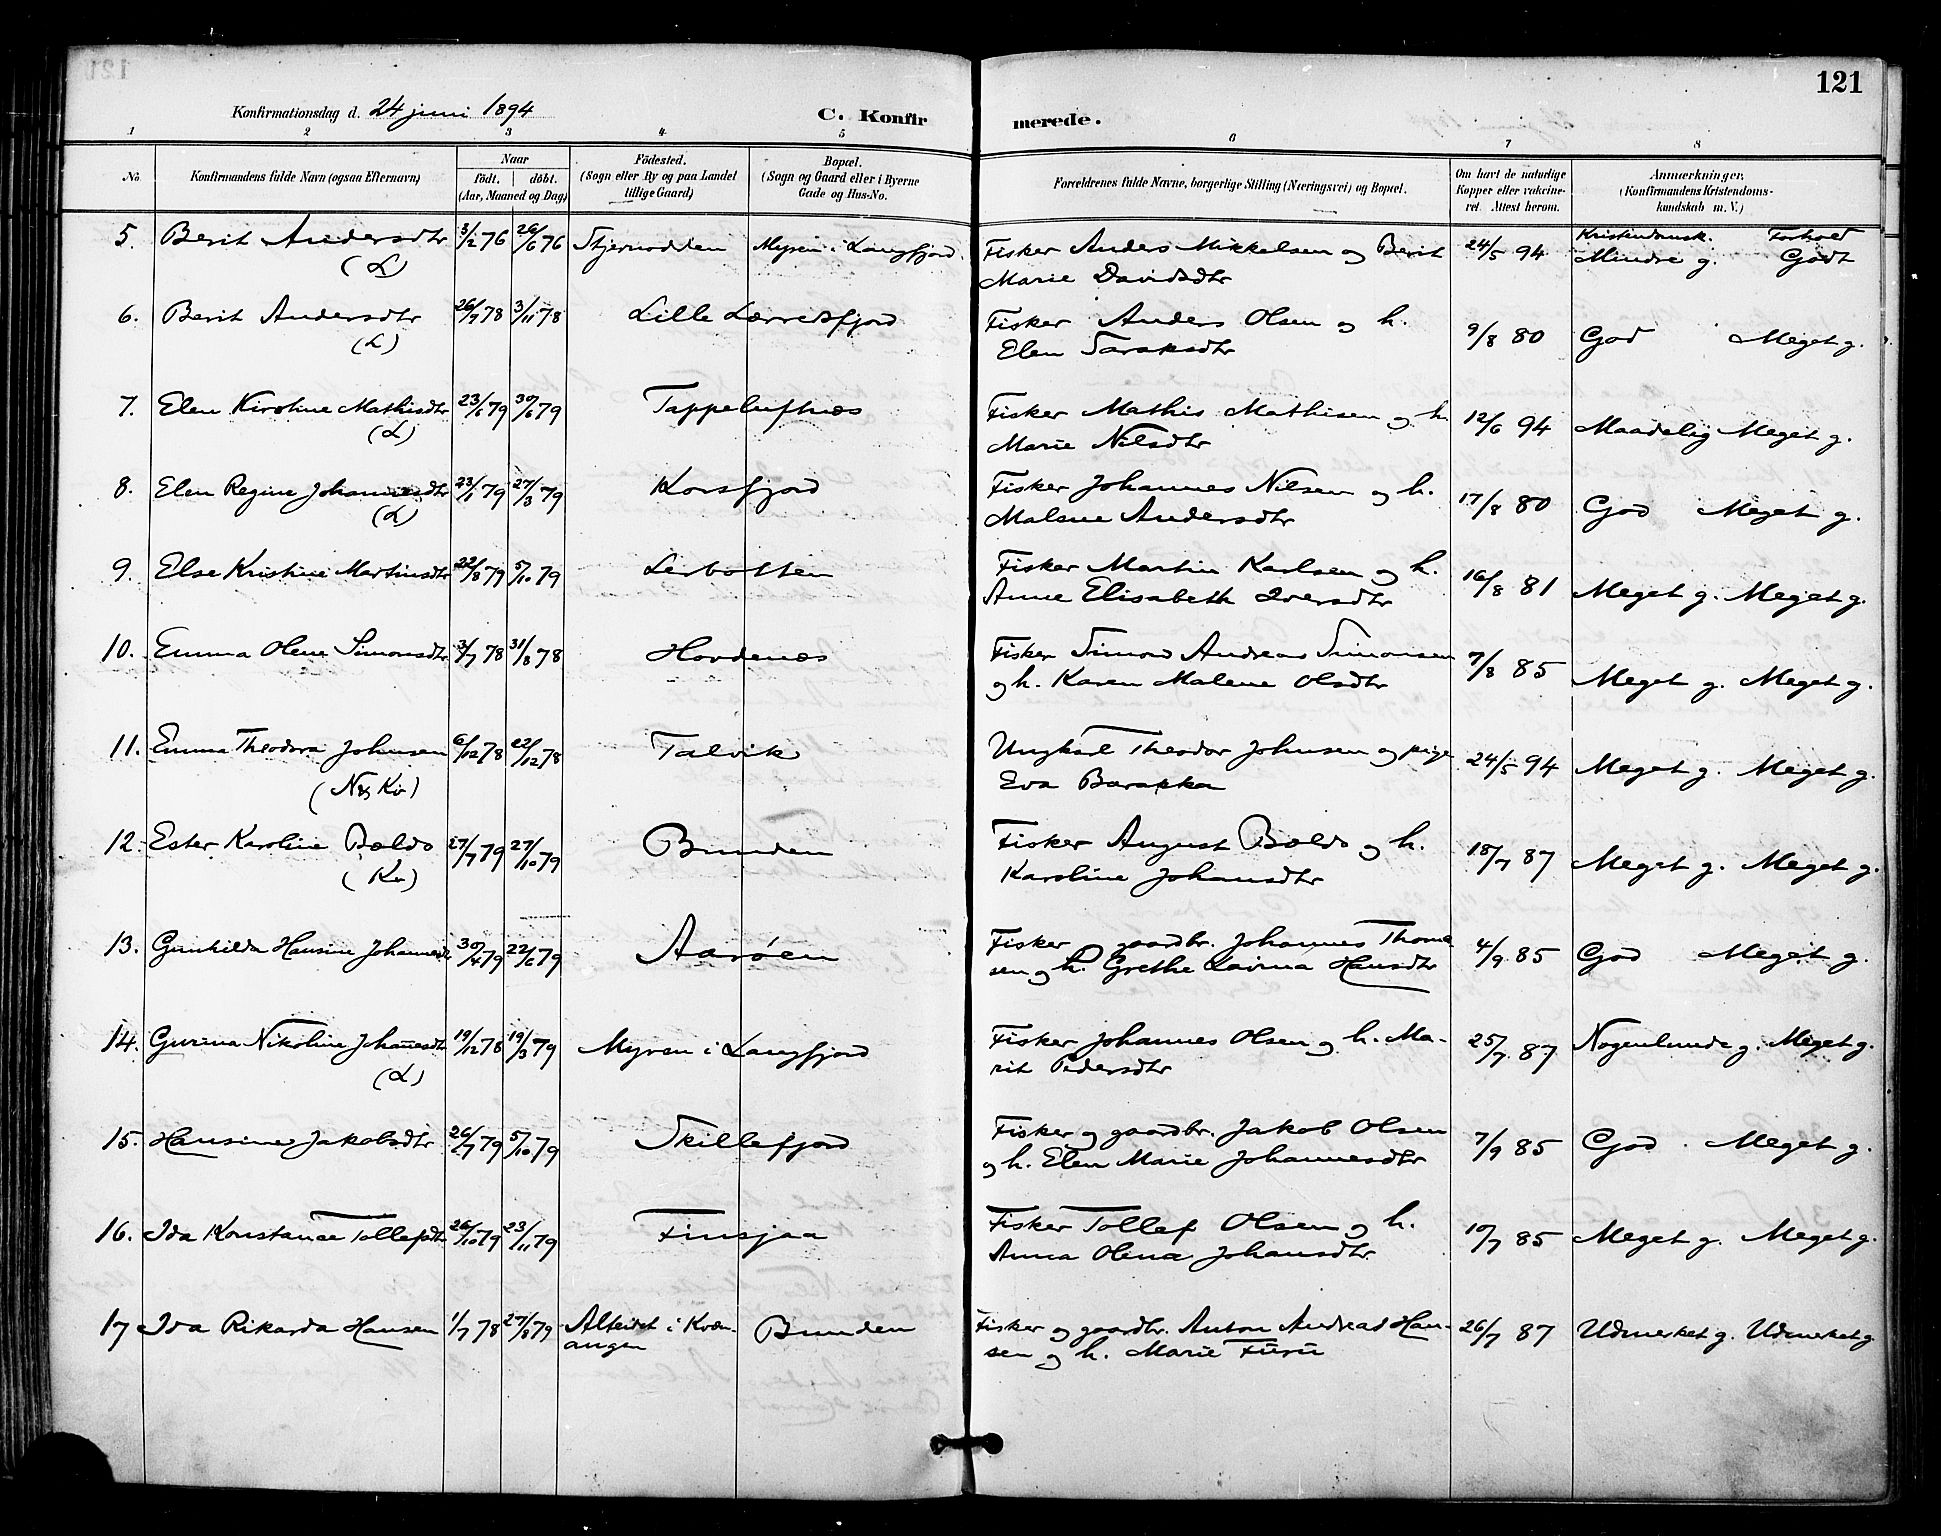 121
Konfirmationsdag d. 24 juni 1894
C. Konfir merede.
1 2 3 4 5 6 7 8
No. Konfirmandens fulde Navn (ogsaa Efternavn) Naar født. døbt. (Aar, Maaned og Dag) Födested. (Sogn eller By og paa Landet tillige Gaard) Bopæl. (Sogn og Gaard eller i Byerne Gade og Hus-No. Forældrenes fulde Navne, borgerlige Stilling (Næringsvei) og Bopæl. Om havt de naturlige Kopper eller vakcineret. Attest herom. Anmærkninger. (Konfirmandens Kristendomskundskab m. V.)
Kristendomsk. Forhold
5. Berit Andersdtr 3/2 76 26/6 76 Stjernodden Myren i Langfjord Fisker Anders Mikkelsen og Berit 24/5 94 Mindre g. Godt
(L) Marie Davidsdtr
6. Berit Andersdtr 26/9 78 3/11 78 Lille Lerredsfjord Fisker Anders Olsen og h. 9/8 80 God Meget g.
(L) Elen Saraksdtr
7. Elen Kirstine Mathisdtr 23/6 79 30/6 79 Tappeluftnæs Fisker Mathis Mathisen og h. 12/6 94 Maadelig Meget g.
(L) Marie Nilsdtr
8. Elen Regine Johannesdtr 23/1 79 27/3 79 Korsfjord Fisker Johannes Nilsen og h. 17/8 80 God Meget g.
(L) Malene Andersdtr
9. Else Kristine Martinsdtr 22/8 79 5/10 79 Lerbotten Fisker Martin Karlsen og h. 16/8 81 Meget g. Meget g.
Anne Elisabeth Iversdtr
10. Emma Olene Simonsdtr 3/7 78 31/8 78 Hovdenæs Fisker Simon Andreas Simonsen 7/8 85 Meget g. Meget g.
og h. Karen Malene Olsdtr
11. Emma Theodora Johnsen 6/12 78 22/12 78 Talvik Ungkarl Theodor Johnsen og pige 24/5 94 Meget g. Meget g.
(N & Kv) Eva Barakka
12. Ester Karoline Boldo 27/7 79 27/10 79 Bunden Fisker August Boldo og h. 18/7 87 Meget g. Meget g.
(Kv) Karoline Johansdtr
13. Gunhilda Hansine Johannesdtr 30/4 79 22/6 79 Aarøen Fisker og gaardbr. Johannes Thomasen og h. Grethe Lavina Hansdtr 4/9 85 God Meget g.
14. Gurina Nikoline Johanesdtr 19/12 78 19/3 79 Myren i Langfjord Fisker Johannes Olsen og h. Ma- 25/7 87 Nogenlunde g. Meget g.
(L) rit Pedersdtr
15. Hansine Jakobsdtr 26/7 79 5/10 79 Skillefjord Fisker og gaardbr. Jakob Olsen 7/9 85 God Meget g.
og h. Elen Marie Johannesdtr
16. Ida Konstanse Tollefsdtr 26/10 79 23/11 79 Finsjaa Fisker Tollef Olsen og h. 10/7 85 Meget g. Meget g.
Anna Olena Johansdtr
17 Ida Rikarda Hansen 1/7 78 27/8 79 Alteidet i Kvæn- Bunden Fisker og gaardbr. Anton Andreas Han- 26/7 87 Udmerket g. Udmerket g.
angen sen og h. Marie Furu